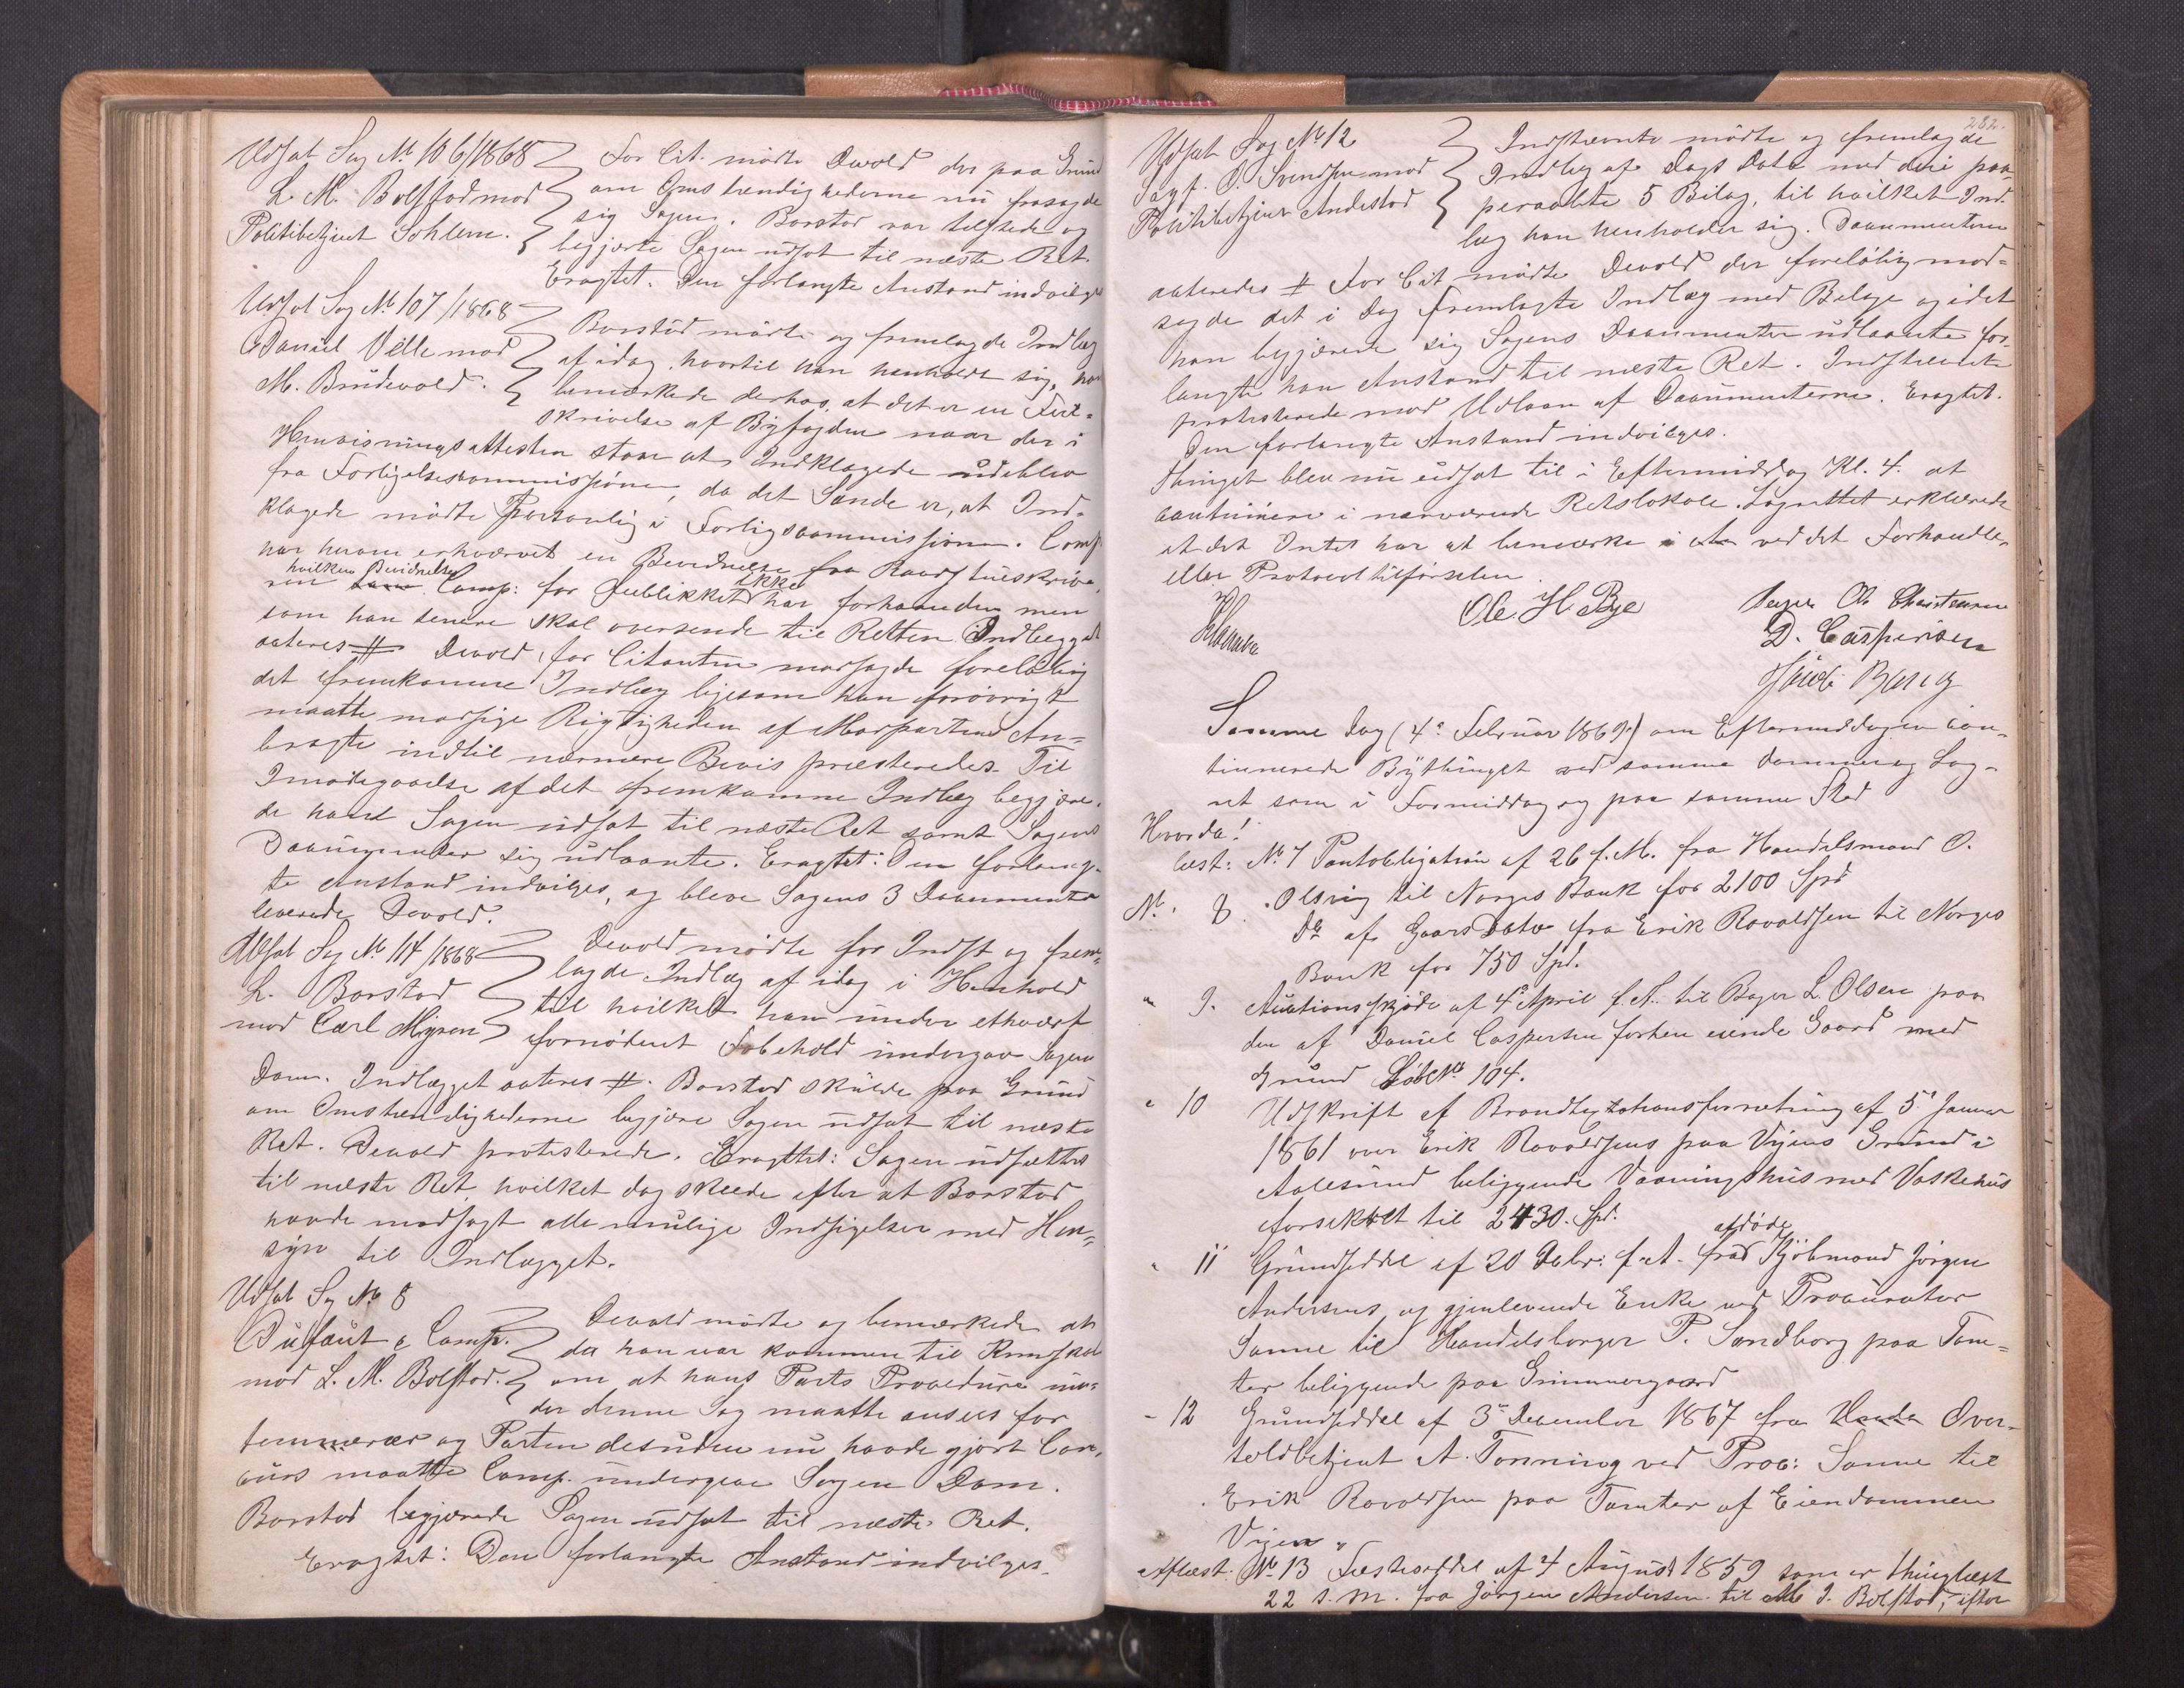 Udsat Sag No 106/1868
L. M. Bolstad mod
Politibetjent Sohlem.
For Cit. mödte Devold der paa Grund
om Omstændighederne nu frasagde
sig Sagen. Barstad var tilstede og
begjærte Sagen udsat til næste Ret.
Eragtet: Den forlangte Anstand indvilges
Udsat Sag No 107/1868
Daniel Velle mod
M. Brudevold.
Barstad mödte og fremlagde Indlæg
af idag, hvortil han henholdt sig, han
bemærkede derhos, at det er en Feil=
skrivelse af Byfogden naar der i
Henvisningsattesten staar at Indklagede udeblev
fra Forligelsescommissionen, da det Sande er, at Ind=
klagede mödte personlig i Forligscommissionen. Comp.
har herom erhvervet en Bevidnelse fra Raadstueskrive,
ren hvilken Bevidnelse Comp: for Öieblikket ikke har forhaanden men
som han senere skal oversende til Retten Indlægget
acteres # Devold, for Citanten modsagde forelöbig
det fremkomne Indlæg ligesom han forövrigt
maatte modsige Rigtigheden af Modpartens An=
bragte indtil nærmere Bevis præsteredes. Til
Imödegaaelse af det fremkomne Indlæg begjære,
de han Sagen udsat til næste Ret samt Sagens
Documenter sig udlaante. Eragtet: Den forlang=
te Anstand indvilges, og bleve Sagens 3 Documenter
leverede Devold.
Udsat Sag No 114/1868
L. Barstad
mod Carl Myren
Devold mödte for Indst og frem=
lagde Indlæg af idag i Henhold
til hvilket han under ethvert
fornödent Forbehold undergav Sagen
Dom. Indlægget acteres #. Barstad skulde paa Grund
om Omstændighederne begjære Sagen udsat til næste
Ret. Devold protesterede. Eragtet: Sagen udsættes
til næste Ret, hvilket dog skeede efter at Barstad
havde modsagt alle mulige Indsigelser med Hen=
syn til Indlægget.
Udsat Sag No 8
Dufaut & Comp.
mod L. M. Bolstad.
Devold mödte og bemærkede at
da han var kommen til Kundskab
om at hans Parts Procedure un=
der denne Sag maatte ansees for
temerær og Parten desuden nu havde gjort Con,
curs maatte Comp. undergive Sagen Dom.
Barstad begjærede Sagen udsat til næste Ret.
Eragtet: Den forlangte Anstand indvilges.
282.
Udsat Sag No 12
Sagf. O. Svendsen mod
Politibetjent Andestad
Indstævnte mödte og fremlagde
Indlæg af Dags Dato med deri paa
peraabte 5 Bilag, til hvilket Ind=
læg han henholder sig. Documenterne
acteredes # For Cit mödte Devold der forelöbig mod=
sagde det i Dag fremlagte Indlæg med Bilage og idet
han begjærede sig Sagens Documenter udlaante for,
langte han Anstand til næste Ret. Indstævnte
protesterede mod Udlaan af Documenterne. Eragtet.
Den forlangte Anstand indvilges.
Thinget blev nu udsat til i Eftermiddag Kl. 4. at
continuere i nærværende Retslokale. Lagrettet erklærede
at det Intet har at bemærke ved det Forhandle,
eller Protocoltilförselen.
Ole. H. Bye
Peder Ch Christensen
D. Caspersen
Jacob Bang
Samme Dag (4e Februar 1869.) om Eftermiddagen con=
tinuerede Bythinget ved samme Dommer og Lag=
ret som i Formiddag og paa samme Sted
Hvorda!
læst: No 7 Pantobligation af 26 f. M. fra Handelsmand O.
Olsvig til Norges Bank for 2100 Spd
No. 8. Do af Gaars Dato fra Erik Rovoldsen til Norges
Bank for 750 Spd.
" 9. Auctionsskjöde af 4e April f. A. til Bager L. Olsen paa
den af Daniel Caspersen forhen eiende Gaard med
Grund Löbe No 104.
" 10 Udskrift af Brandtaxtationsforretning af 5e Januar
1861 over Erik Rovoldsens paa Vigens Grund i
Aalesund beliggende Vaaningshus med Vaskehus
forsikkret til 2430. Spd.
" 11 Grundseddel af 20 Decbr: f. A. fra afdöde Kjöbmand Jörgen
Andersens og gjenlevende Enke ved Procurator
Sanne til Handelsborger P. Sandborg paa Tom=
ter beliggende paa Grimmergaard
" 12 Grundseddel af 3e December 1867 fra Over=
toldbetjent A. Tonning ved Proc: Sanne til
Erik Rovoldsen paa Tomter af Eiendommen
Vigen "
Aflæst: No 13 Festeseddel af 4 August 1859 som er thinglæst
22 s. M. fra Jörgen Andersen til M J. Bolstad, efter